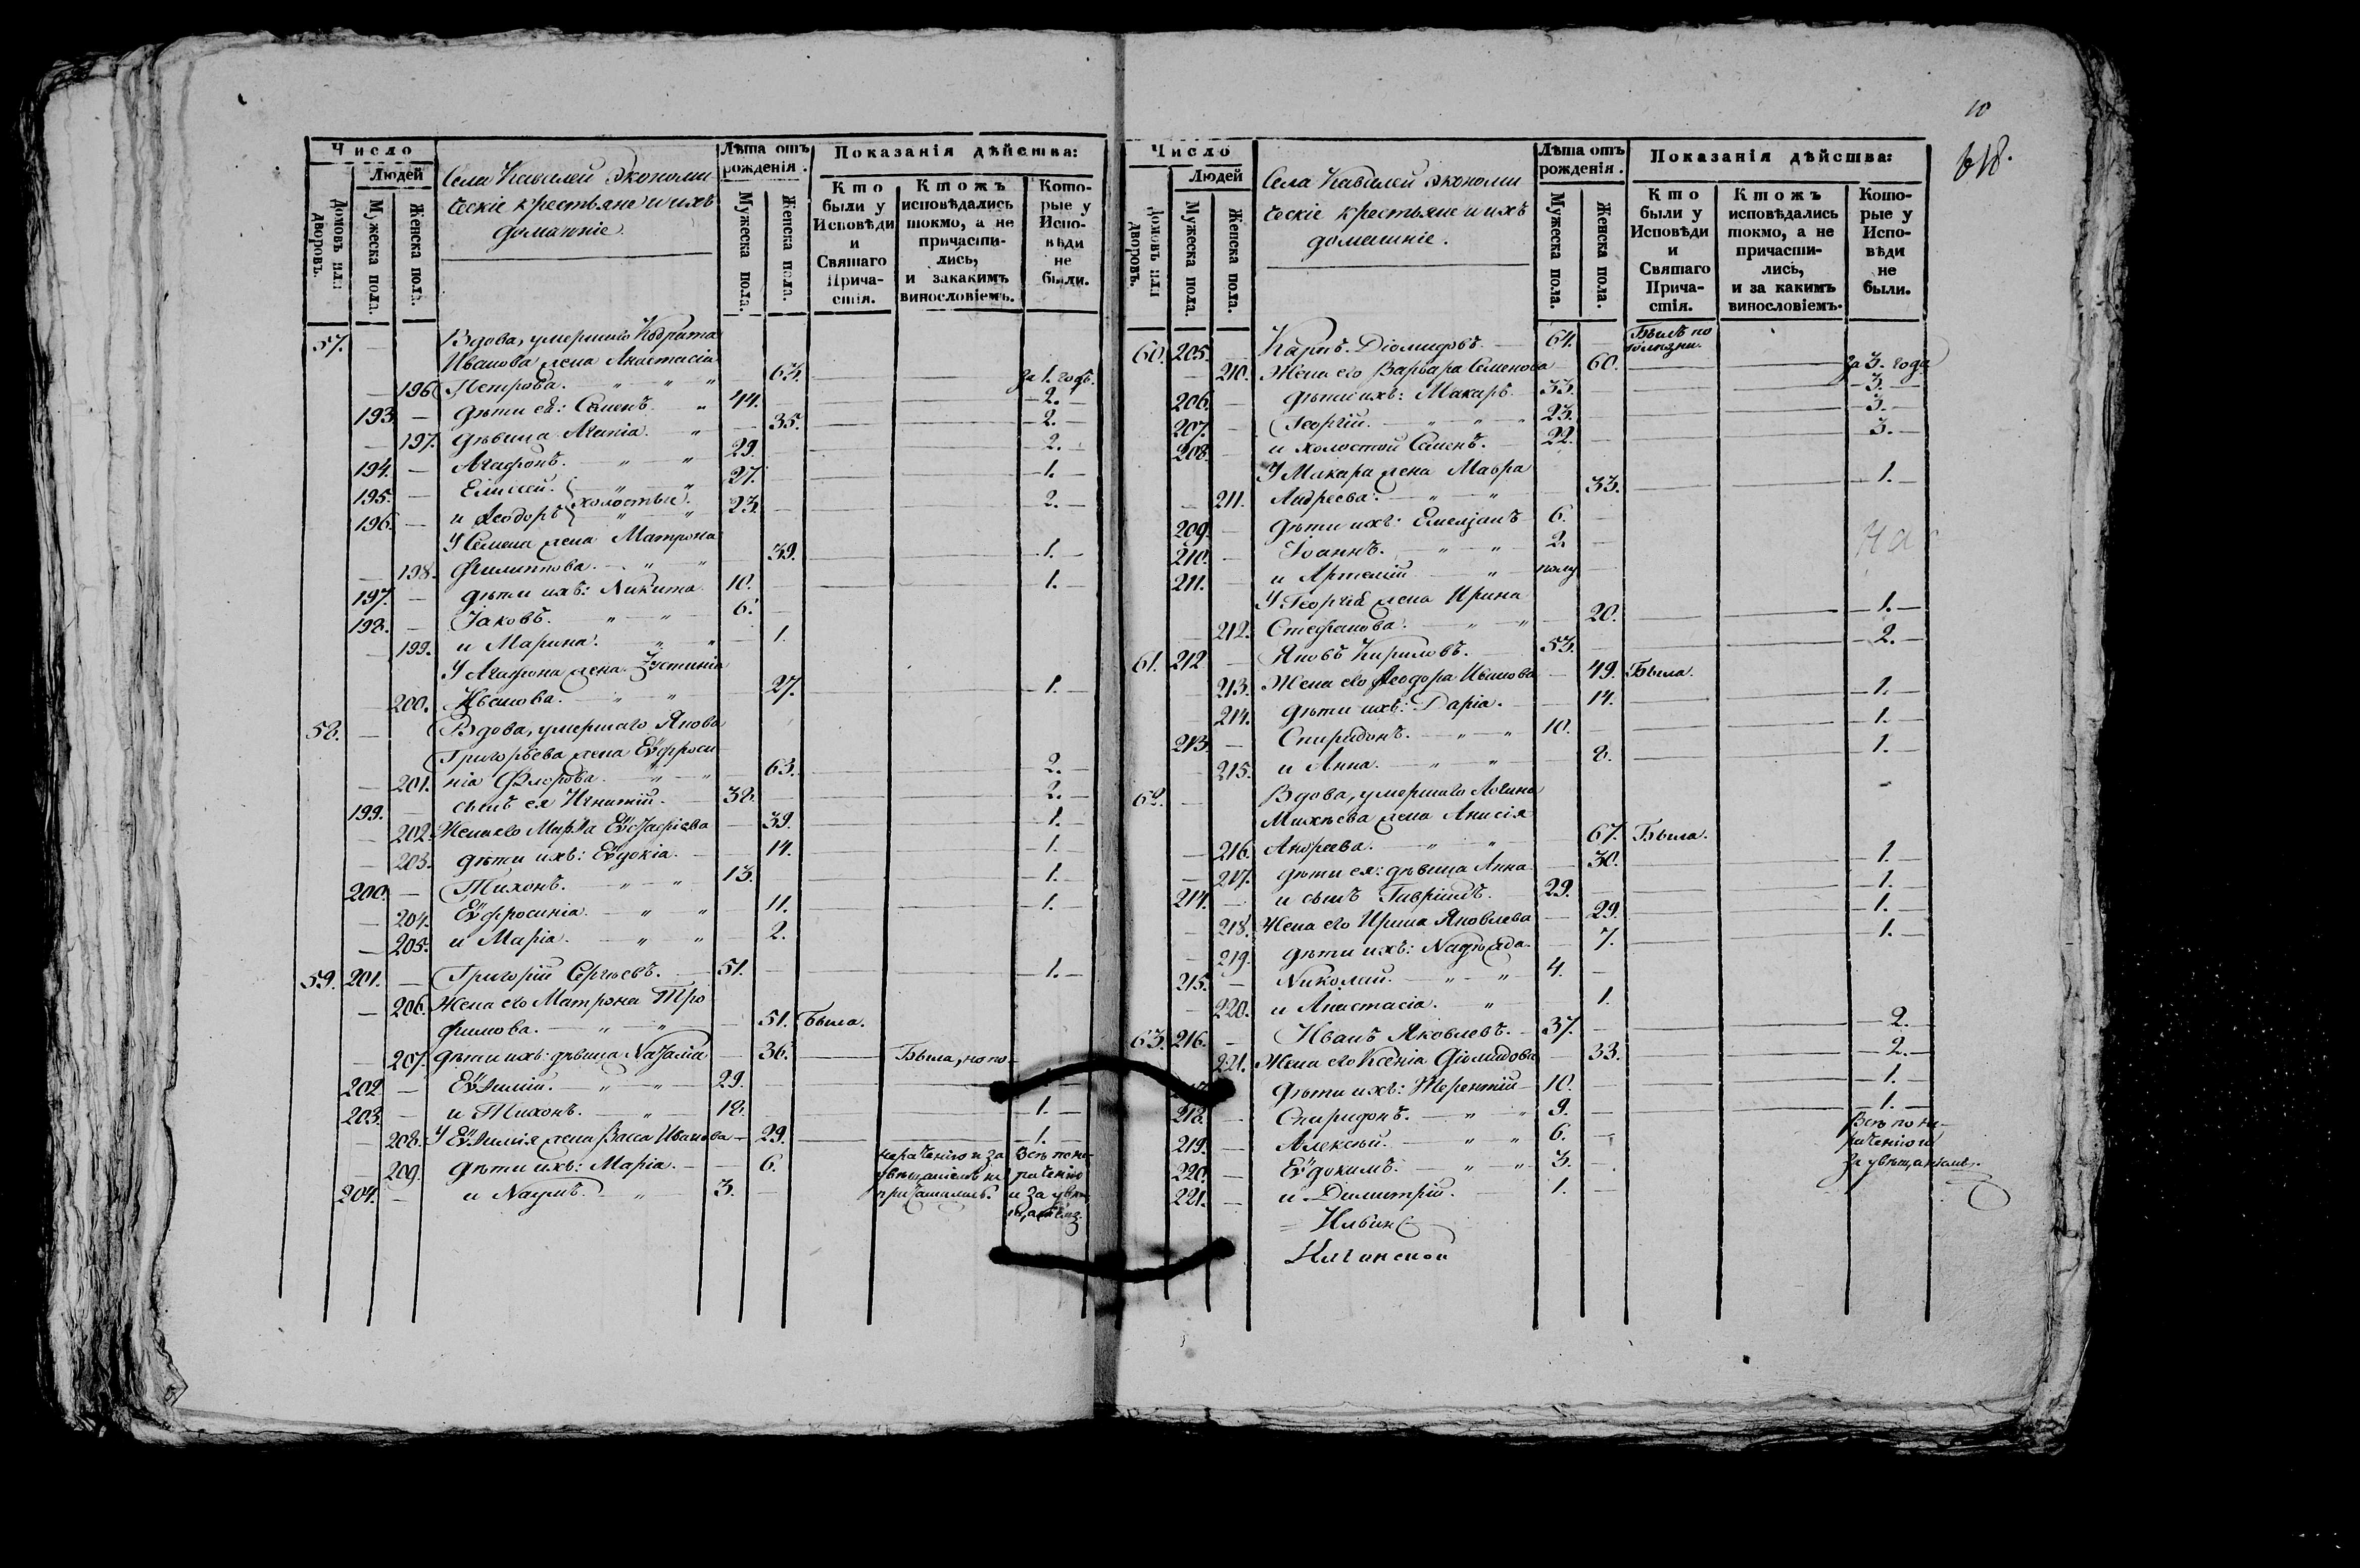 Число
Людей
Домовъ или дворовъ.
Мужеска пола.
Женска пола.
Села Кавалеи Экономи
ческіе крестьяне и ихъ
домашніе.
Лѣта отъ рожденія.
Мужеска пола.
Женска пола.
Показанія дѣйства:
Кто были у Исповѣди и Святаго Причастія.
Ктожъ исповѣдались токмо, а не причастились, и закакимъ винословіемъ.
Которые у Исповѣди не были.
57. — Вдова, умершаго Кодрата
Иванова жена Анастасія
— 196. Петрова. 63. за 1. годъ.
193. — дѣти еѣ: Семенъ. 44. — 2. —
— 197. дѣвица Агапіа. 35. — 2. —
194. — Агафонъ. 29. — 2. —
195. — Елисей. 27. — 1. —
холостые.
196. — и Ѳеодоръ 23. — 2. —
У Семена жена Матрона
— 198. Филиппова. 39. — 1. —
197. — дѣти ихъ: Никита 10. — 1. —
198. — Іаковъ. 6. —
— 199. и Марина. 1.
У Агафона жена Іустиніа
— 200. Иванова. 27. — 1. —
58. — Вдова, умершаго Якова
Григорьева жена Еѵфроси
— 201. ніа Флорова. 63. — 2. —
199. сынъ ея Игнатій. 38. — 2. —
— 202. Жена его Марѳа Еѵстафіева 39. — 1. —
— 203. дѣти ихъ: Еѵдокіа. 14. — 1. —
200. — Тихонъ. 13. — 1. —
— 204. Еѵфросиніа. 11. — 1. —
— 205. и Маріа. 2.
59. 201. — Григорій Сергѣевъ. 51. — 1. —
— 206. Жена его Матрона Тро
фимова. 51. Была.
— 207. дѣти ихъ: дѣвица Наталіа 36. Была, но по
202. — Еѵѳимій. 29.
203. — и Тихонъ. 18. — 1. —
— 208. У Еѵѳиміа жена Васса Иванова 29. — 1. —
— 209. дѣти ихъ: Маріа. 6.
204. — и Наумъ. 3. —
нераченію и за
увѣщаніемъ не
причащалась.
Всѣ по не
раченію
и за увѣ
щаніемъ
10
618.
Число
Людей
Домовъ или дворовъ.
Мужеска пола.
Женска пола.
Села Кавалеи Экономи
ческіе крестьяне и ихъ
домашніе.
Лѣта отъ рожденія.
Мужеска пола.
Женска пола.
Показанія дѣйства:
Кто были у Исповѣди и Святаго Причастія.
Ктожъ исповѣдались токмо, а не причастились, и за какимъ винословіемъ.
Которые у Исповѣди не были.
60. 205. — Карпъ Діомидовъ. 64. — Былъ по болѣзни.
— 210. Жена его Варвара Семенова 60. за 3. года
206. — дѣти ихъ: Макаръ. 33. — 3. —
207. — Георгій. 23. — 3. —
208. — и холостой Семенъ. 22. — 3. —
У Макара жена Мавра
— 211. Андреева. 33. — 1. —
209. — дѣти ихъ: Емеліанъ 6. —
210. — Іоаннъ. 2. —
211. — и Артемій полу —
У Георгіа жена Ирина
— 212. Стефанова. 20. — 1. —
61. 212. — Яковъ Кириловъ. 53. — 2. —
213. Жена его Ѳеодора Иванова 49. Была.
— 214. дѣти ихъ: Даріа. 14. — 1. —
213. — Спиридонъ. 10. — 1. —
— 215. и Анна. 8. — 1. —
62. — Вдова, умершаго Логина
Михѣева жена Анисіа
— 216. Андреева. 67. Была.
— 217. дѣти ея: дѣвица Анна 30. — 1. —
214. — и сынъ Гавріилъ. 29. — 1. —
— 218. Жена его Ирина Яковлева 29. — 1. —
— 219. дѣти ихъ: Надѣжда 7. — 1. —
215. — Николай. 4. —
— 220. и Анастасіа. 1.
63. 216. — Иванъ Яковлевъ. 37. — 2. —
221. Жена его Ксеніа Діомидова 33. — 2. —
дѣти ихъ: Терентій 10. — 1. —
218. — Спиридонъ. 9. — 1. —
219. — Алексѣй. 6. —
220. — Еѵдокимъ. 3. —
221. — и Димитрій. 1. —
Всѣ по не
раченію и
за увѣщаніемъ.